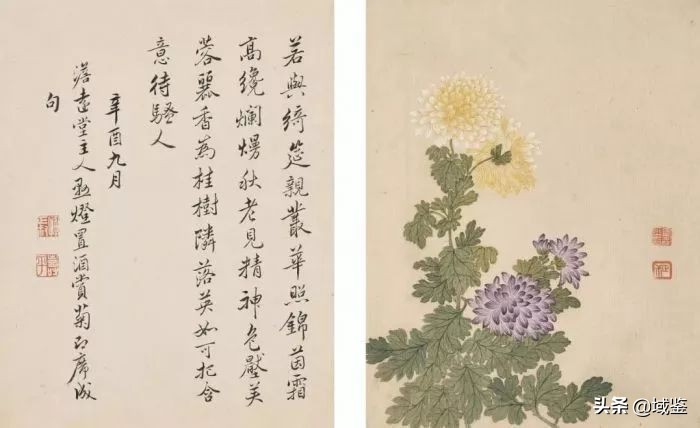 若與綺筵親叢華照錦茵霜
高纔爛熳秋老見精神色壓芙
蓉麗香為桂樹隣落英如可把含
意待騷人
辛酉九月
澹遠堂主人張燈置酒賞菊即席成
句
头条 @域鉴